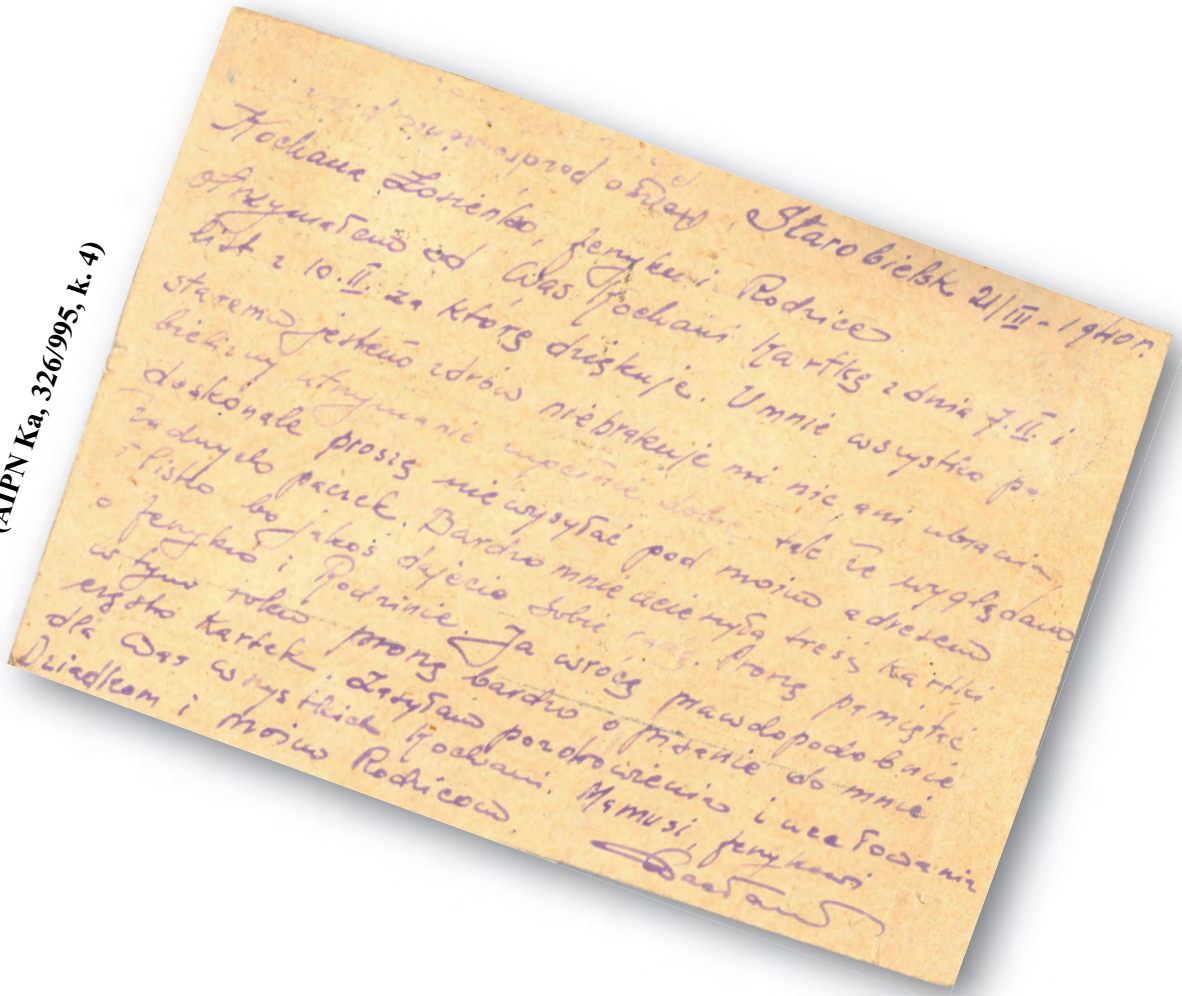 Starobielsk 21/III - 1940r.
Kochana Zosieńko, Jerzyku i Rodzice
otrzymałem od Was Kochani Kartkę z dnia 7.II. i
list z 10.II. za którą dziękuję. U mnie wszystko po
staremu jestem zdrów niebrakuje mi nic ani ubrania
bielizny utrzymanie zupełnie dobre tak że wyglądam
doskonale proszę niewysyłać pod moim adresem
żadnych paczek. Bardzo mnie ucieszyła treść Kartki
i listu bo jakoś dajecie sobie radę. Proszę pamiętać
o Jerzyku i Rodzinie. Ja wrócę prawdopodobnie
w tym roku proszę bardzo o pisanie do mnie
często Kartek. Zasyłam pozdrowienia i ucałowania
dla Was wszystkich Kochani. Mamusi, Jerzykowi
Dziadkom i moim Rodzicom.
Wacław
(AIPN Ka, 326/995, k. 4)